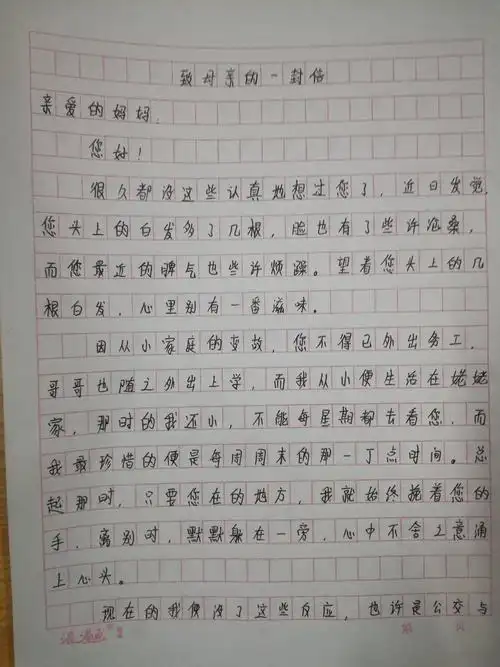 致母亲的一封信
亲爱的妈妈：
您好！
很久都没这些认真地想过您了，近日发觉，
您头上的白发多了几根，脸也有了些许沧桑，
而您最近的脾气也些许烦躁。望着您头上的几
根白发，心里别有一番滋味。
因从小家庭的变故，您不得已外出务工，
哥哥也随之外出上学，而我从小便生活在姥姥
家，那时的我还小，不能每星期都去看您，而
我最珍惜的便是每周周末的那一丁点时间。总
起那时，只要您在的地方，我就始终挽着您的
手，离别时，默默躲在一旁，心中不舍之意涌
上心头。
现在的我便没了这些反应，也许是公交与
第 页